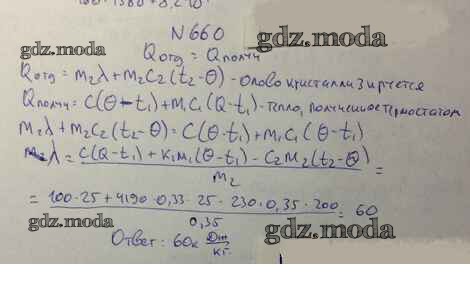 N660
gdz.moda
gdz.moda
Qотд = Qполуч
Qотд = m₂λ + m₂C₂(t₂-θ) - олово кристаллизируется
Qполуч = C(θ-t₁) + M₁C₁(Q-t₁) - тепло, полученное термостатом
m₂λ + m₂C₂(t₂-θ) = C(θ-t₁) + m₁C₁(θ-t₁)
λ = C(Q-t₁) + K₁m₁(θ-t₁) - C₂M₂(t₂-Q) / m₂ =
= 100·25 + 4190·0,33·25 - 230·0,35·200 / 0,35 = 60
gdz.moda
gdz.moda
Ответ: 60к Дж/кг.